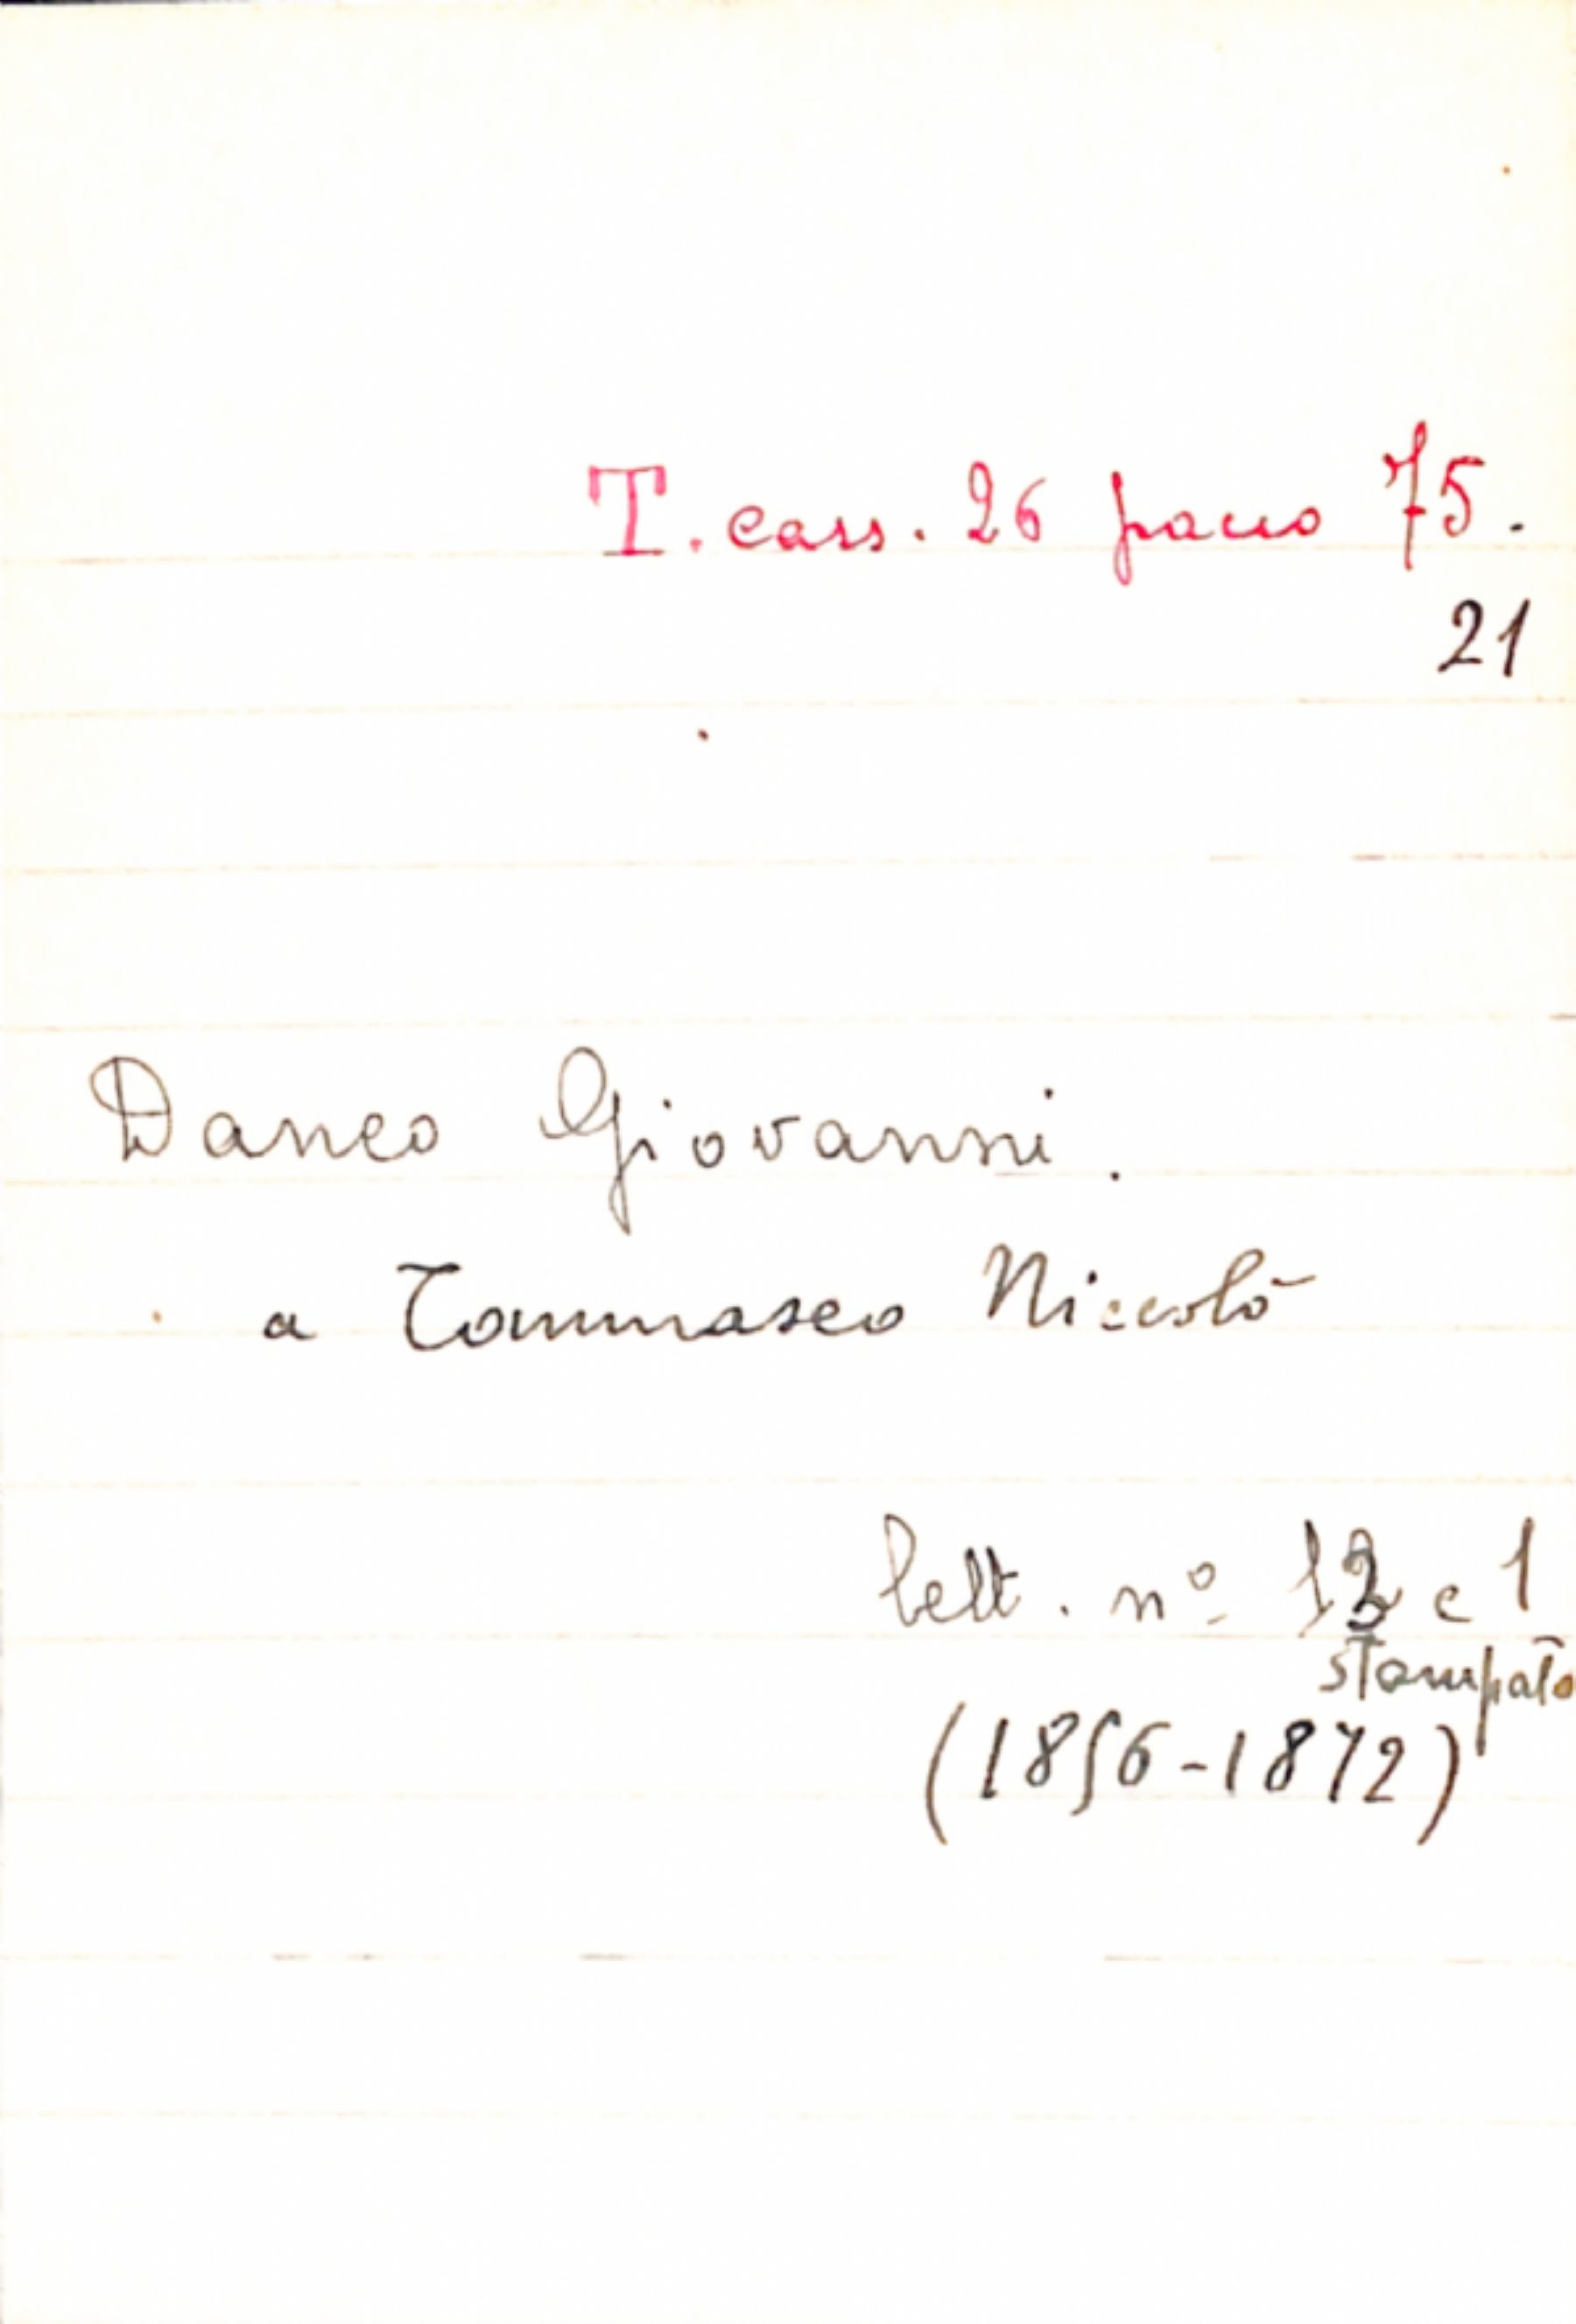 T. cass. 26 pacco 75.
21
Daneo Giovanni.
a Tommaseo Niccolò
lett. nº 12 e 1
stampato
(1856-1872)